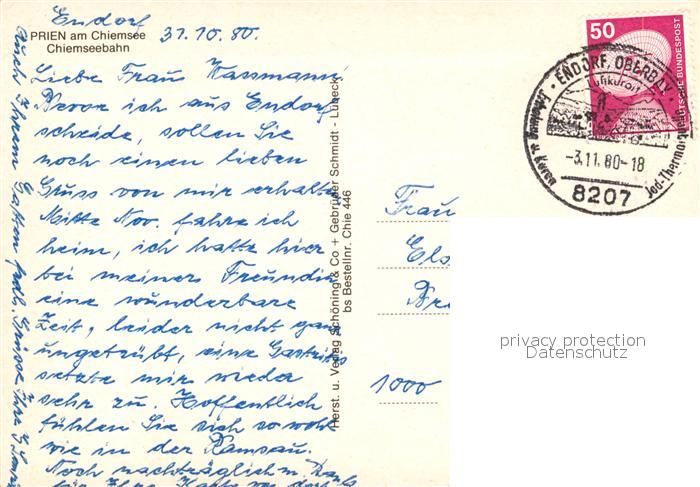 Endorf
PRIEN am Chiemsee
Chiemseebahn
31.10.80.
Liebe Frau Wassmann,
Bevor ich aus Endorf
scheide, sollen Sie
noch einen lieben
Gruss von mir erhalten
Mitte Nov. fahre ich
heim, ich hatte hier
bei meiner Freundin
eine wunderbare
Zeit, leider nicht ganz
ungetrübt, eine Gastritis
setzte mir wieder
sehr zu. Hoffentlich
fühlen Sie sich so wohl
wie in der Ramsau.
Noch nachträglich m. Dank
für Ihre Karte von dort
Auch Ihrem Gatten frdl. Grüsse Ihre
Herst. u. Verlag Schöning & Co + Gebrüder Schmidt - Lübeck
bs Bestellnr. Chie 446
50
DEUTSCHE BUNDESPOST
ENDORF, OBERBAY
Luftkurort
Jod-Thermalquelle
-3.11.80-18
8207
Frau
Els
Bre
1000
privacy protection
Datenschutz